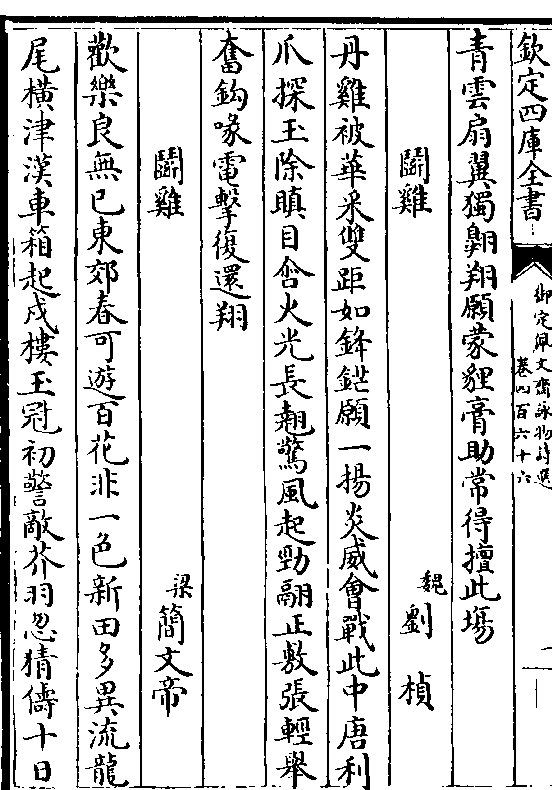 欽定四庫全書
御定佩文齋詠物詩選
卷四百六十六
青雲扇翼獨翺翔願蒙貍膏助常得擅此塲
鬬雞
魏劉楨
丹雞被華采雙距如鋒鋩願一揚炎威會戰此中唐利
爪探玉除瞋目含火光長翹驚風起勁翮正敷張輕舉
奮鈎喙電擊復還翔
鬬雞
梁簡文帝
歡樂良無已東郊春可遊百花非一色新田多異流龍
尾橫津漢車箱起戍樓玉冠初警敵芥羽忽猜儔十日